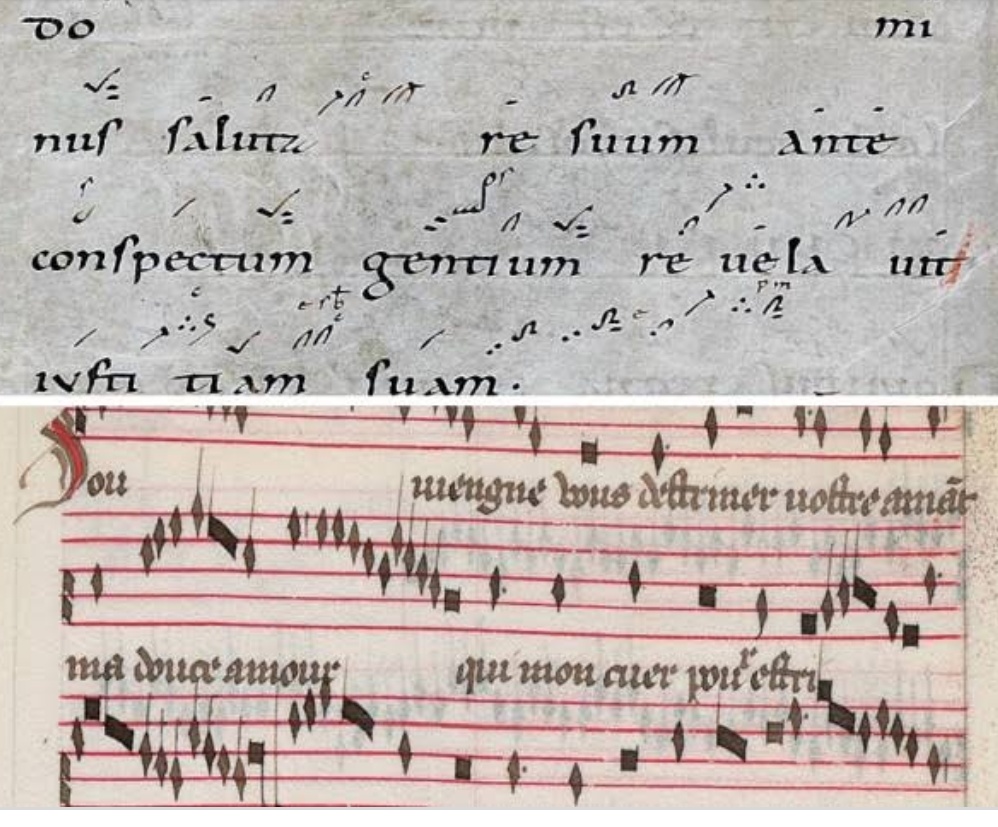 DO mi
nus salutare suum ante
conspectum gentium revelavit
iusti tiam suam.
Dou
viengne vous destriner vostre amāt
ma douce amour qui mon cuer pour